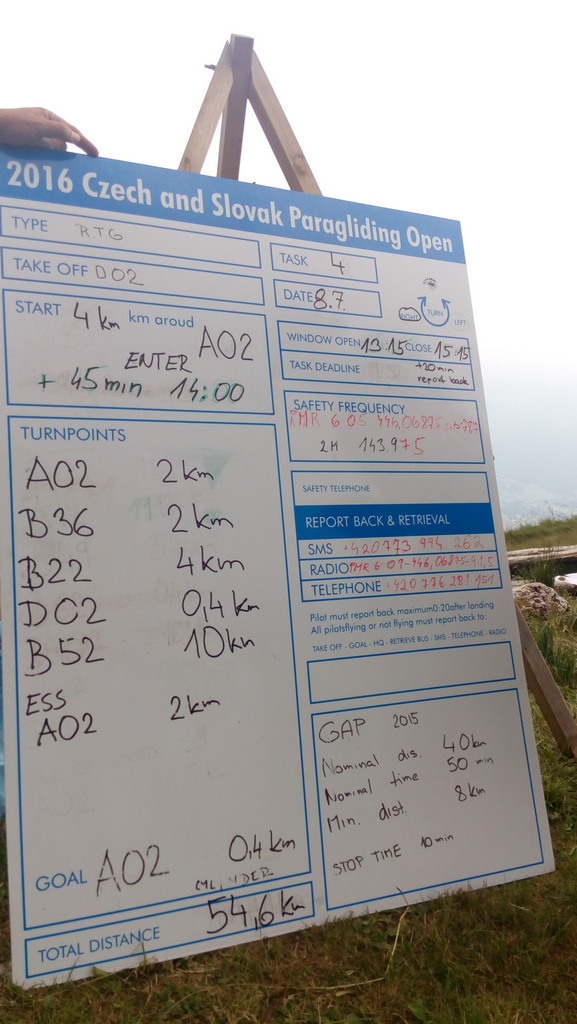 2016 Czech and Slovak Paragliding Open
TYPE R.T.G
TAKE OFF D02
START 4 km km aroud A02
ENTER
+ 45 min 14:00
TURNPOINTS
A02 2 km
B36 2 km
B22 4 km
D02 0,4 km
B52 10 km
ESS
A02 2 km
GOAL A02 0,4 km
TOTAL DISTANCE 54,6 km
TASK 4
DATE 8.7.
RIGHT TURN LEFT
WINDOW OPEN 13:15 CLOSE 15:15
TASK DEADLINE +20 min
report back
SAFETY FREQUENCY
PMR 6 05
2M 143.975
SAFETY TELEPHONE
REPORT BACK & RETRIEVAL
SMS +420773 994 262
RADIO PMR 6 07-446,06875
TELEPHONE +420 776 281 151
Pilot must report back maximum0:20after landing
All pilotsflying or not flying must report back to:
TAKE OFF - GOAL - HQ - RETRIEVE BUS - SMS - TELEPHONE - RADIO
GAP 2015
Nominal dis. 40km
Nominal time 50 min
Min. dist. 8 km
STOP TIME 10 min